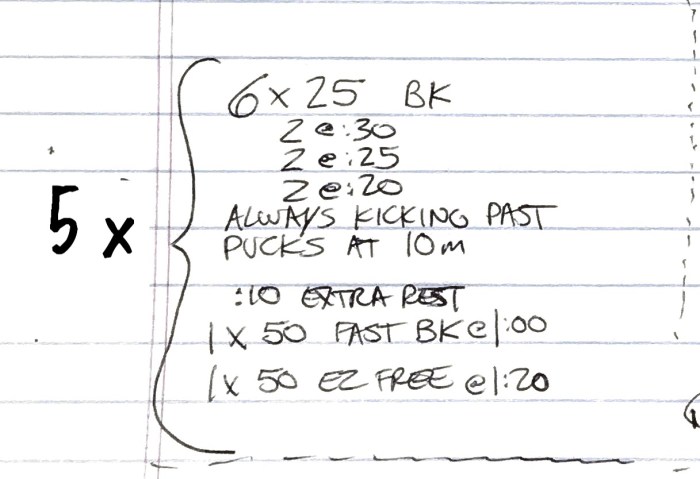 5 x
6 x 25 BK
2 @ :30
2 @ :25
2 @ :20
ALWAYS KICKING PAST
PUCKS AT 10m
:10 EXTRA REST
1 x 50 FAST BK @ 1:00
1 x 50 EZ FREE @ 1:20